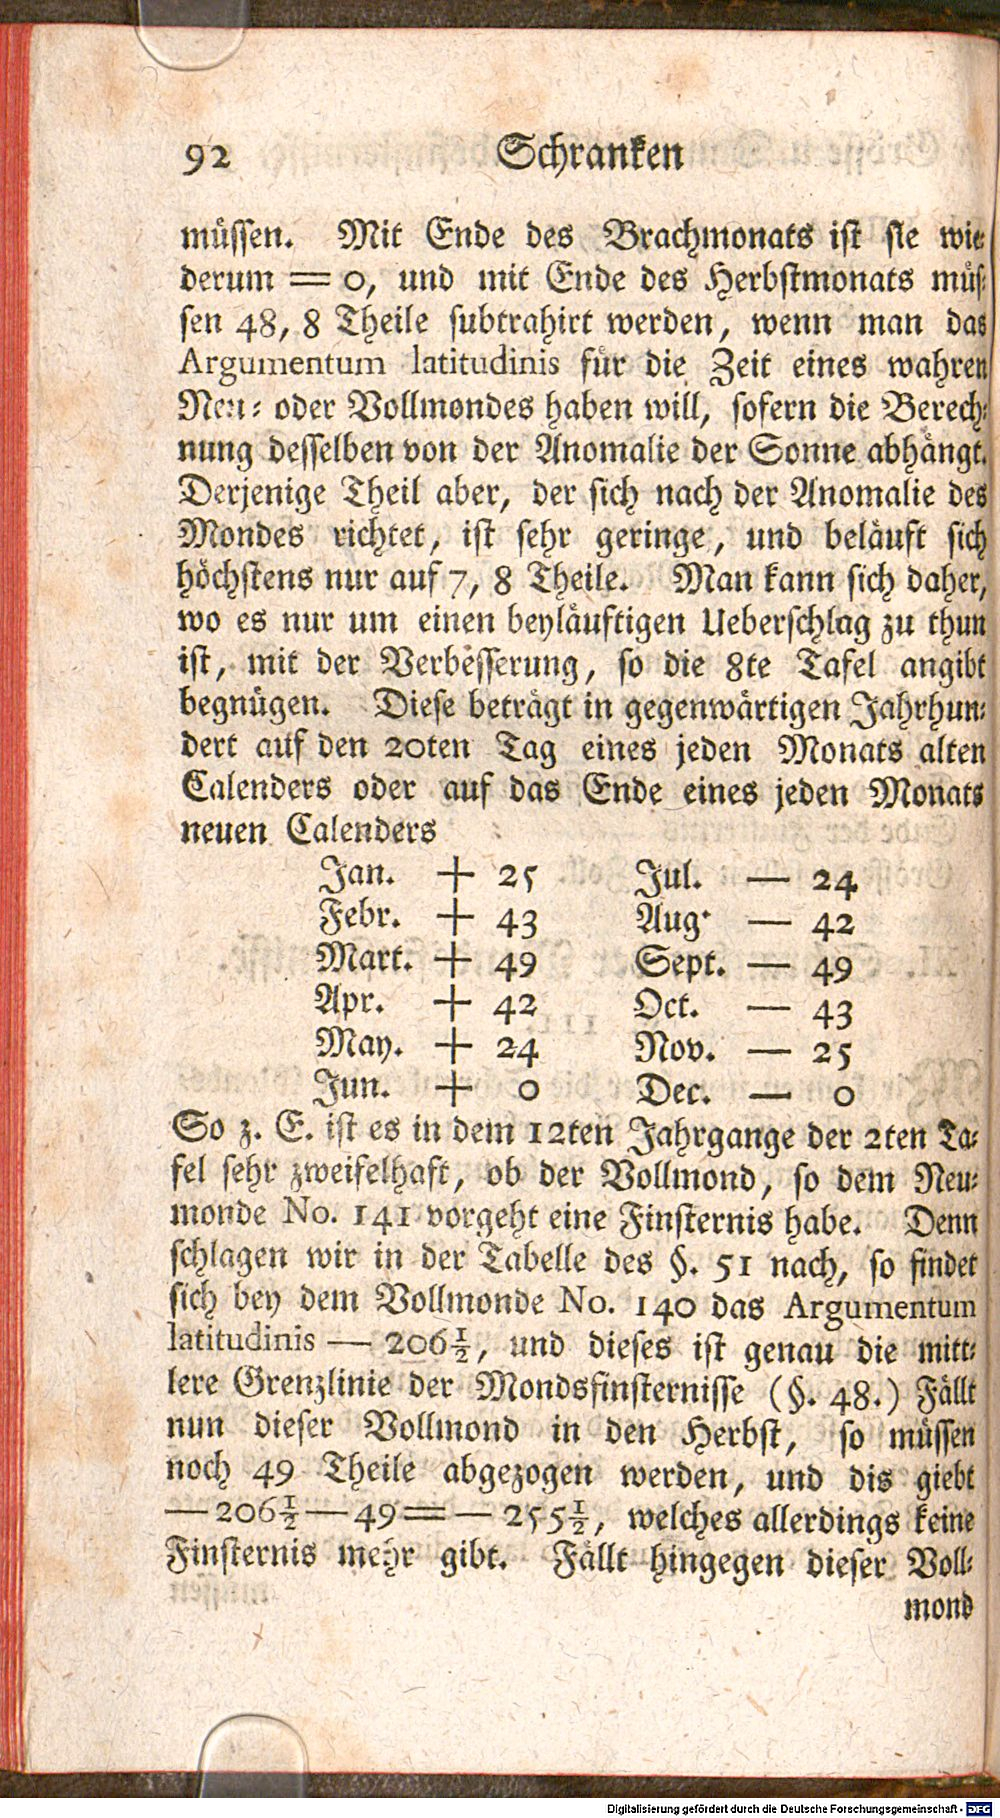 92 Schranken
müssen. Mit Ende des Brachmonats ist sie wie-
derum = 0, und mit Ende des Herbstmonats müs-
sen 48, 8 Theile subtrahirt werden, wenn man das
Argumentum latitudinis für die Zeit eines wahren
Neu- oder Vollmondes haben will, sofern die Berech-
nung desselben von der Anomalie der Sonne abhängt.
Derjenige Theil aber, der sich nach der Anomalie des
Mondes richtet, ist sehr geringe, und beläuft sich
höchstens nur auf 7, 8 Theile. Man kann sich daher,
wo es nur um einen beyläuftigen Ueberschlag zu thun
ist, mit der Verbesserung, so die 8te Tafel angibt
begnügen. Diese beträgt in gegenwärtigen Jahrhun-
dert auf den 20ten Tag eines jeden Monats alten
Calenders oder auf das Ende eines jeden Monats
neuen Calenders
Jan. + 25 Jul. — 24
Febr. + 43 Aug. — 42
Mart. + 49 Sept. — 49
Apr. + 42 Oct. — 43
May. + 24 Nov. — 25
Jun. + 0 Dec. — 0
So z. E. ist es in dem 12ten Jahrgange der 2ten Ta-
fel sehr zweifelhaft, ob der Vollmond, so dem Neu-
monde No. 141 vorgeht eine Finsternis habe. Denn
schlagen wir in der Tabelle des §. 51 nach, so findet
sich bey dem Vollmonde No. 140 das Argumentum
latitudinis — 206½, und dieses ist genau die mitt-
lere Grenzlinie der Mondsfinsternisse (§. 48.) Fällt
nun dieser Vollmond in den Herbst, so müssen
noch 49 Theile abgezogen werden, und dis giebt
— 206½ — 49 = — 255½, welches allerdings keine
Finsternis mehr gibt. Fällt hingegen dieser Voll-
mond
Digitalisierung gefördert durch die Deutsche Forschungsgemeinschaft - DFG